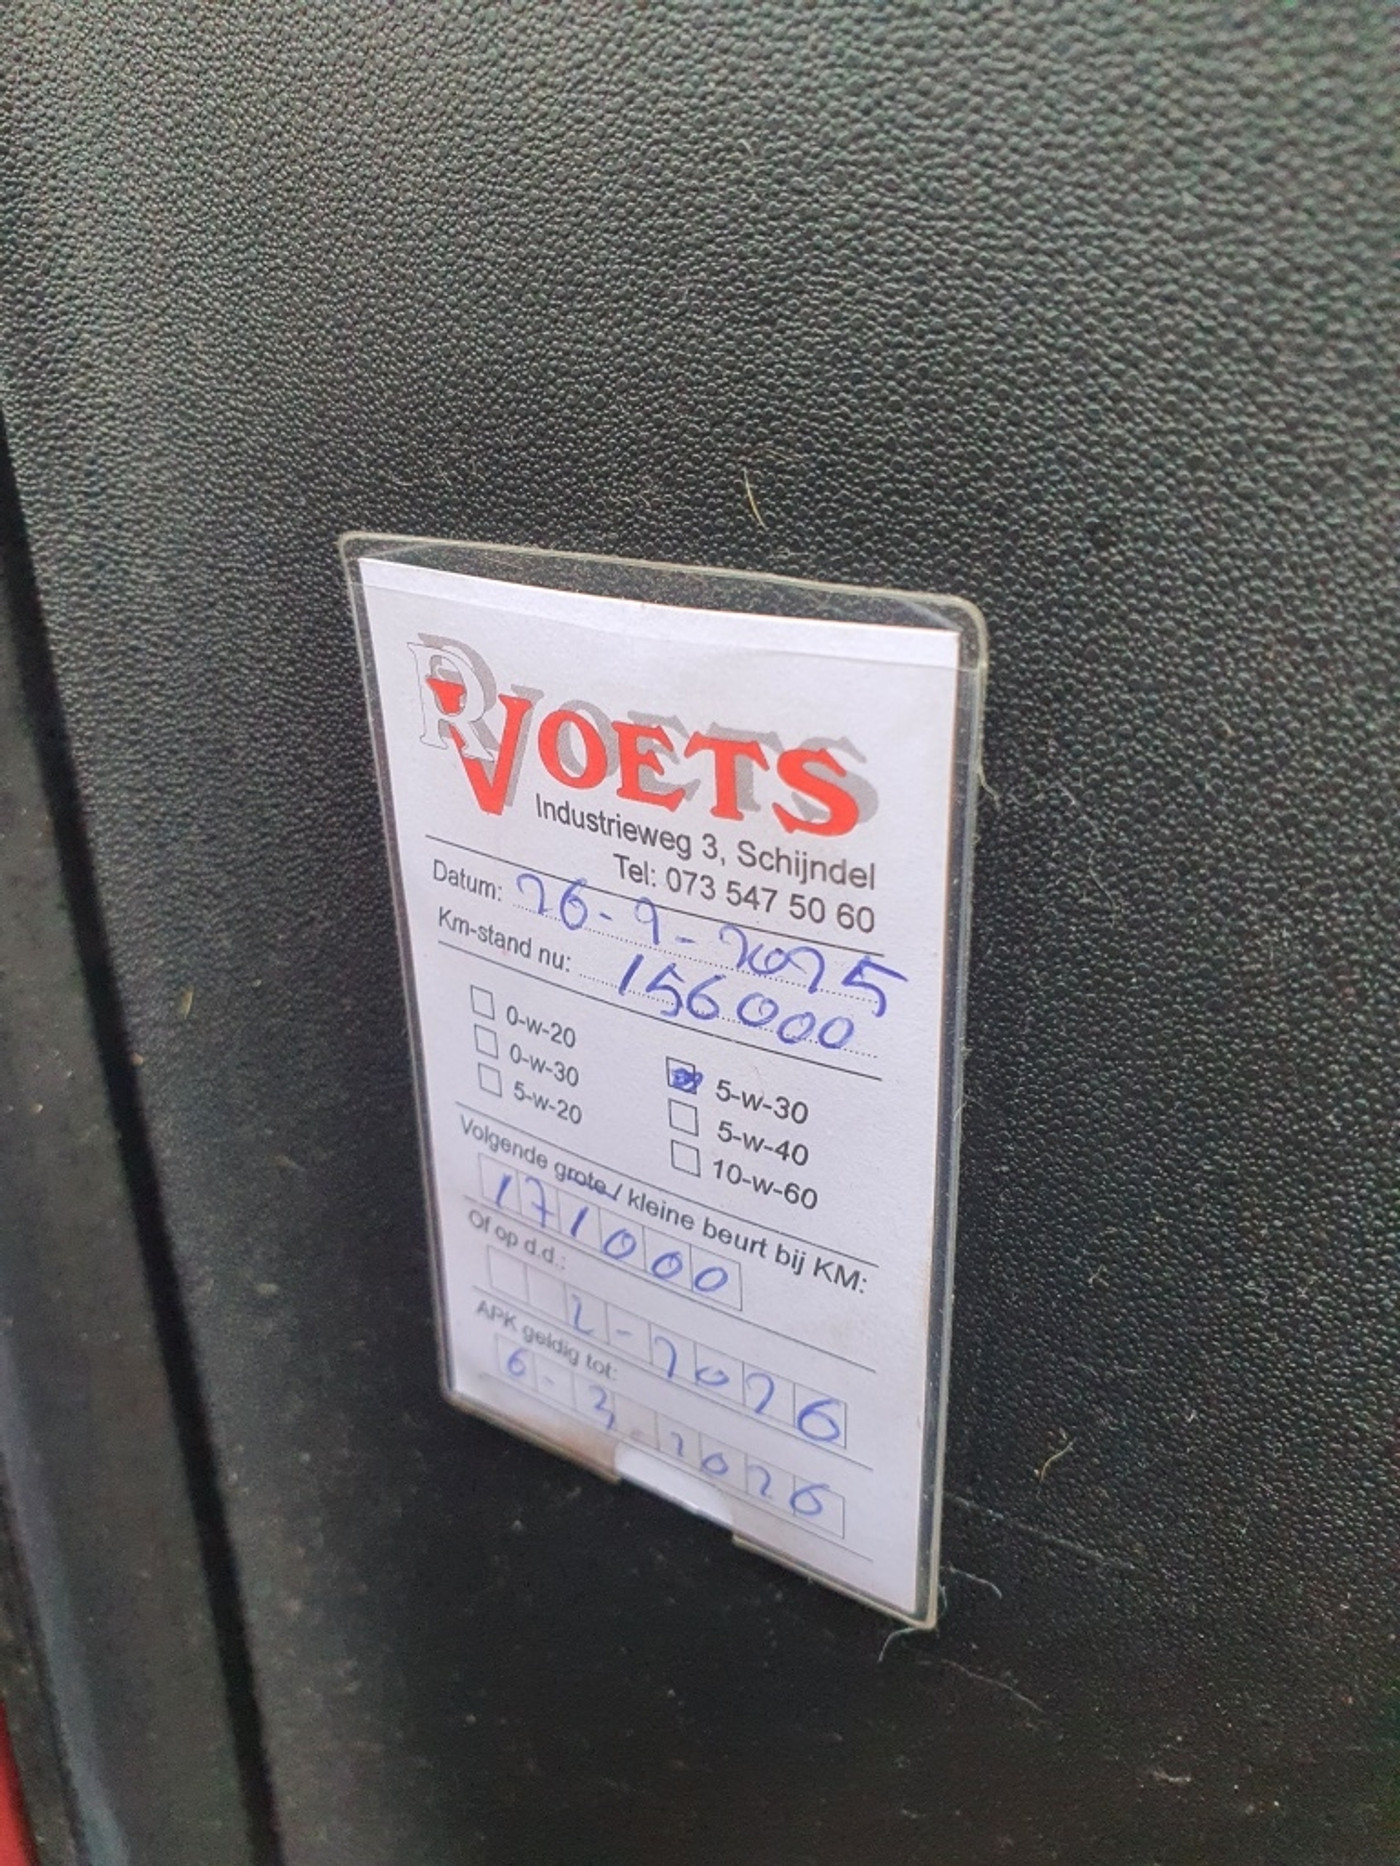 R VOETS
Industrieweg 3, Schijndel
Tel: 073 547 50 60
Datum: 26-9-2025
Km-stand nu: 156000
0-w-20
0-w-30
5-w-20
5-w-30
5-w-40
10-w-60
Volgende grote / kleine beurt bij KM:
171000
Of op d.d.:
2-2026
APK geldig tot:
6-3-2026